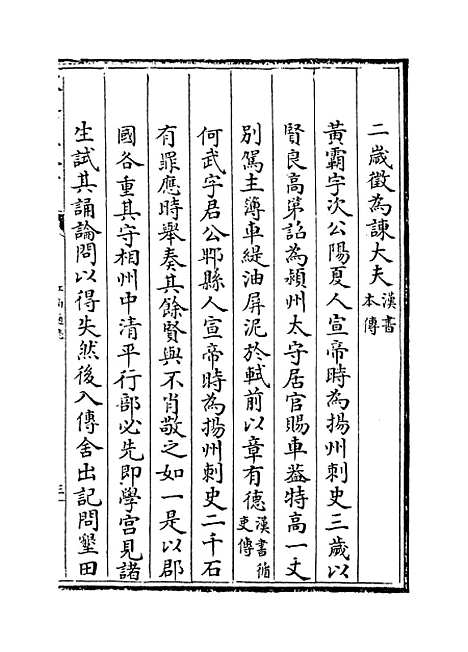 二歲徵為諫大夫漢書本傳
黃霸字次公陽夏人宣帝時為揚州刺史三歲以
賢良高第詔為潁州太守居官賜車葢特高一丈
別駕主簿車緹油屏泥於軾前以章有德漢書循吏傳
何武字君公郫縣人宣帝時為揚州刺史二千石
有罪應時舉奏其餘賢與不肖敬之如一是以郡
國各重其守相州中清平行部必先即學宮見諸
生試其誦論問以得失然後入傳舍出記問墾田